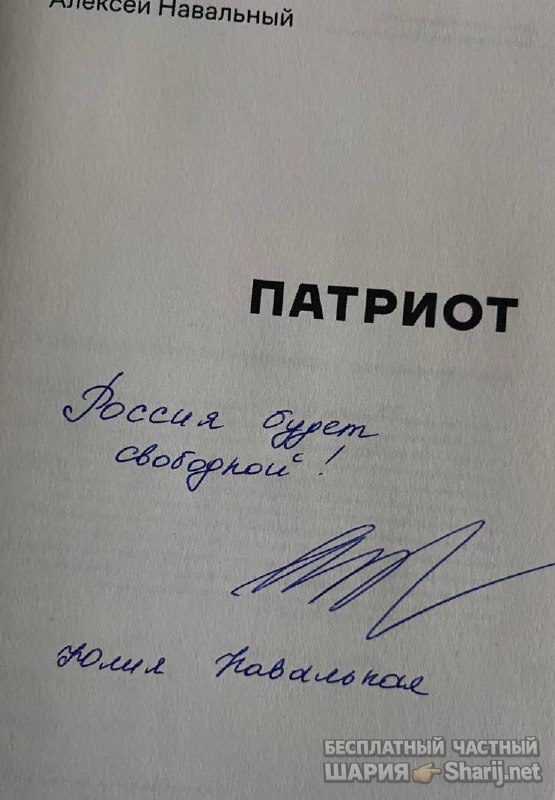 Алексей Навальный
ПАТРИОТ
Россия будет
свободной!
Юлия Навальная
БЕСПЛАТНЫЙ ЧАСТНЫЙ
ШАРИЯ👉Sharij.net